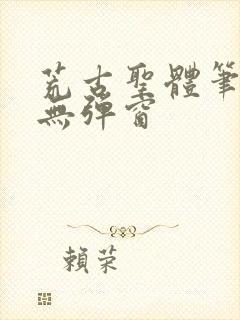 荒古聖體筆
無彈窗
賴荣